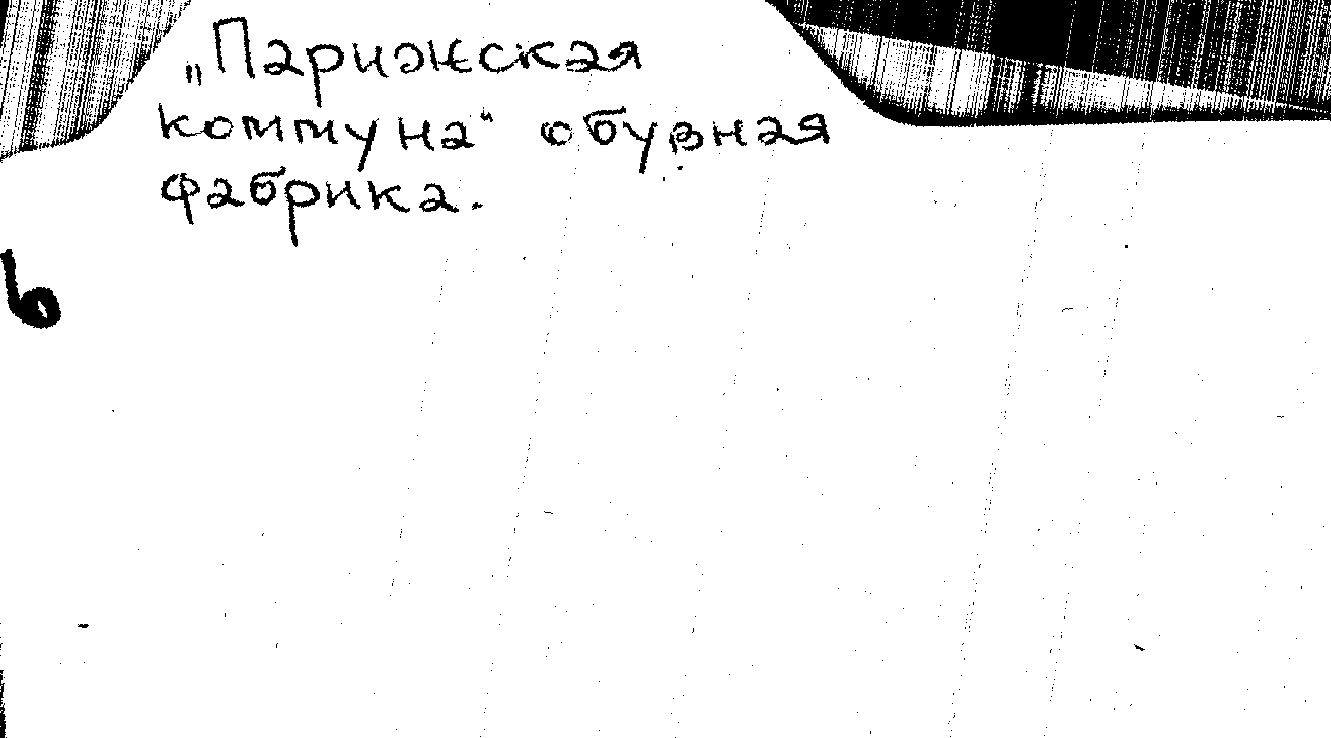 „Парижская
коммуна“ обувная
фабрика.